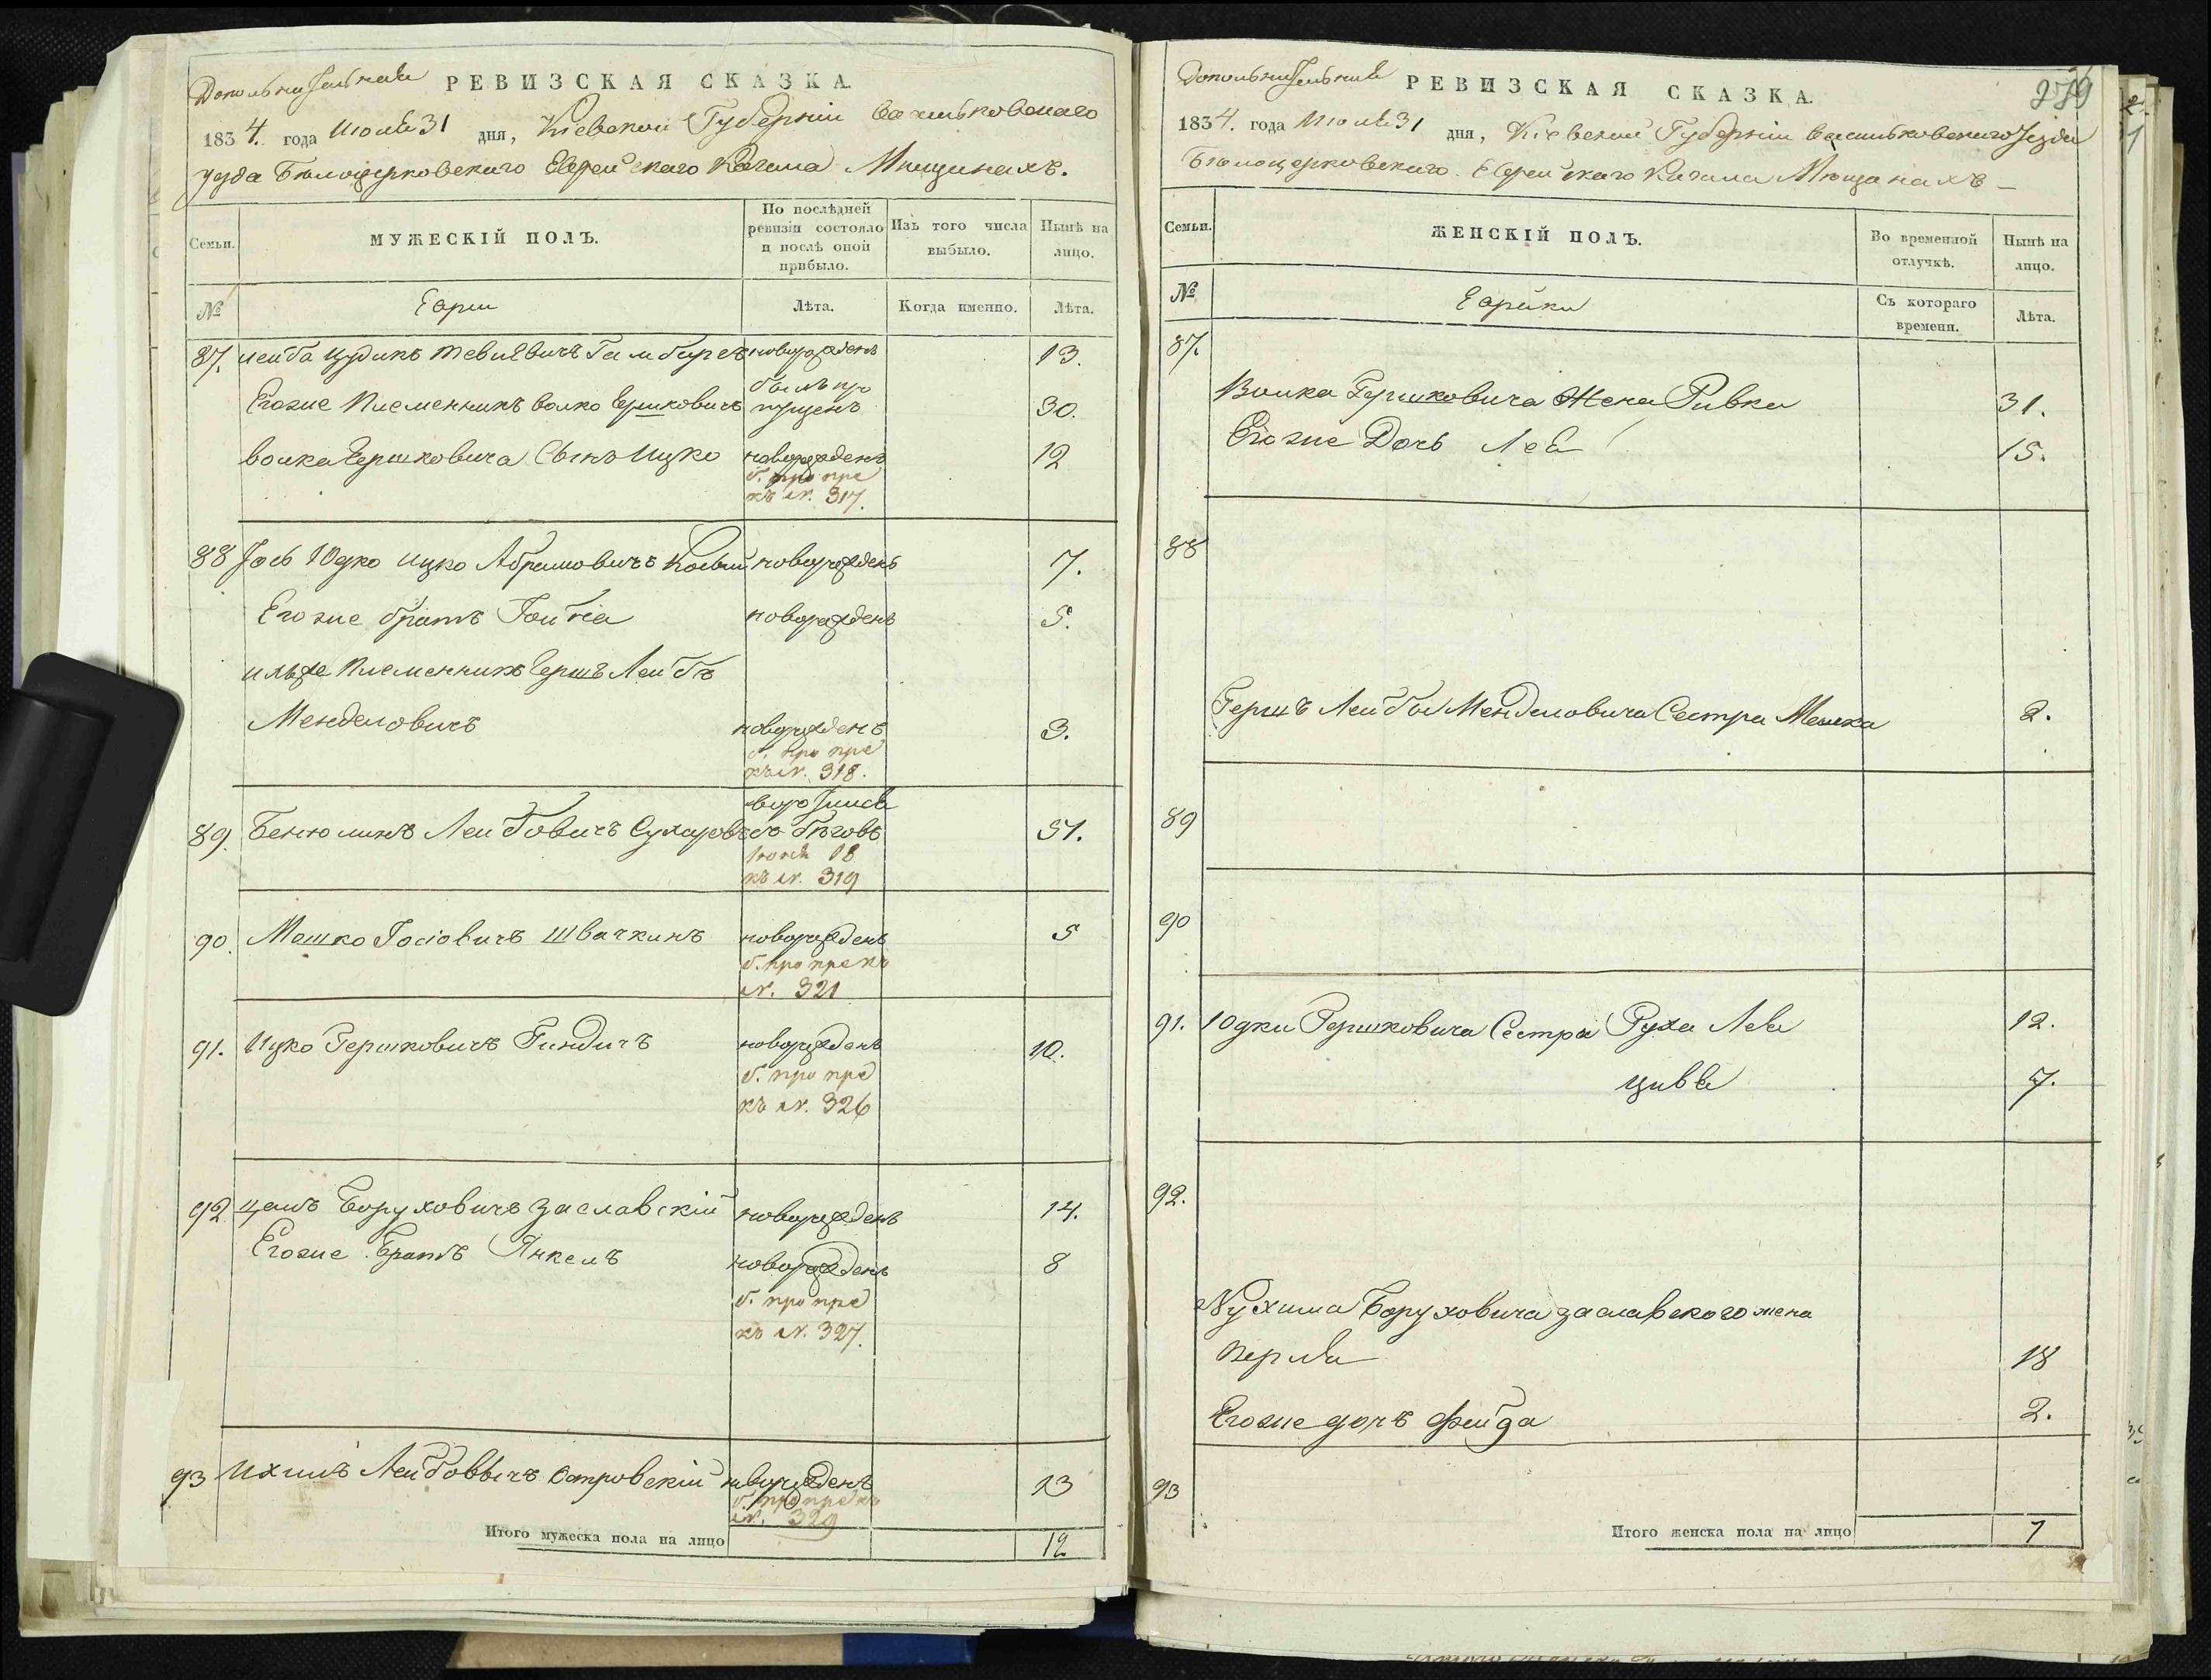 Дополнительная РЕВИЗСКАЯ СКАЗКА.
1834. года Июля 31 дня, Кіевской Губерніи Васильковскаго
уезда Белоцерковскаго Еврейскаго Кагала Мещанахъ.
Семьи.
МУЖЕСКІЙ ПОЛЪ.
По послѣдней ревизіи состояло и послѣ оной прибыло.
Изъ того числа выбыло.
Нынѣ на лицо.
№
Евреи
Лѣта.
Когда именно.
Лѣта.
87. Лейба Цудикъ Тевилевичъ новорожденъ 13.
Егоже Племенникъ Волко Гершковичъ былъ пропущенъ 30.
Волка Гершковича Сынъ Ицко новорожденъ 12
къ №. 317.
88 Іось Юдко Ицко Абрамовичъ новорожденъ 7.
Егоже братъ новорожденъ 5.
ихже Племенникъ Гершъ Лейбъ
Менделовичъ новорожденъ 3.
къ №. 318.
89. Бенюминъ Лейбовичъ Сухаровъ съ беговъ 51.
18
къ №. 319
90. Мошко Іосіовичъ Швачкинъ новорожденъ 5
№. 321
91. Ицко Гершковичъ Гиндичъ новорожденъ 10.
къ №. 326
92 Боруховичъ Заславскій новорожденъ 14.
Егоже Братъ Янкель новорожденъ 8
къ №. 327.
93 Ихилъ Лейбовичъ Островскій новорожденъ 13
№. 329
Итого мужеска пола на лицо 12
Дополнительная РЕВИЗСКАЯ СКАЗКА.
279
1834. года Июля 31 дня, Кіевской Губерніи Васильковскаго Уезда
Белоцерковскаго Еврейскаго Кагала Мещанахъ
Семьи.
ЖЕНСКІЙ ПОЛЪ.
Во временной отлучкѣ.
Нынѣ на лицо.
№
Еврейки
Съ котораго времени.
Лѣта.
87.
Волка Гершковича Жена Ривка 31.
Егоже Дочь Лея 15.
88
Гершъ Лейбы Менделовича Сестра 2.
89
90
91. Юдки Гершковича Сестра Руха Лея 12.
Цивья 7.
92.
Нухима Боруховича Заславского жена
Перля 18
Егоже дочъ Фейга 2.
93
Итого женска пола на лицо 7